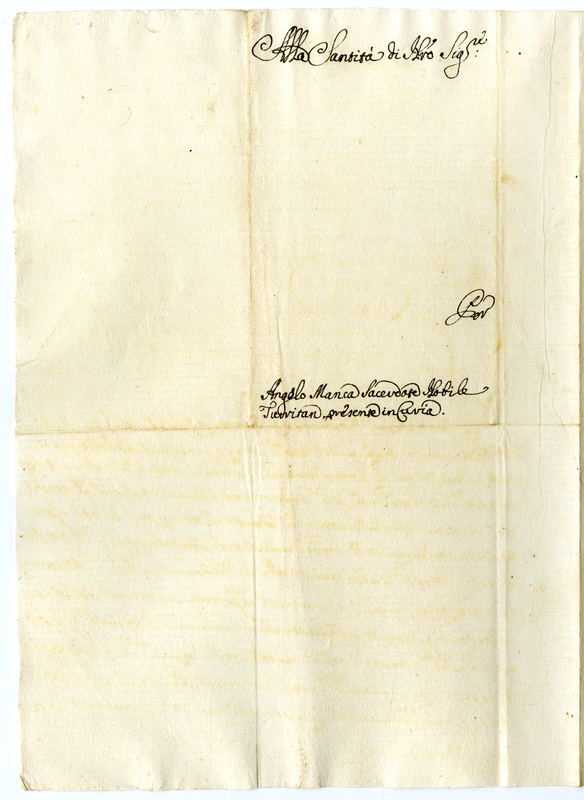 Alla Santità di Nrõ Sig:re
Per
Angelo Manca Sacerdote Nobile
Turritan presente in Curia.